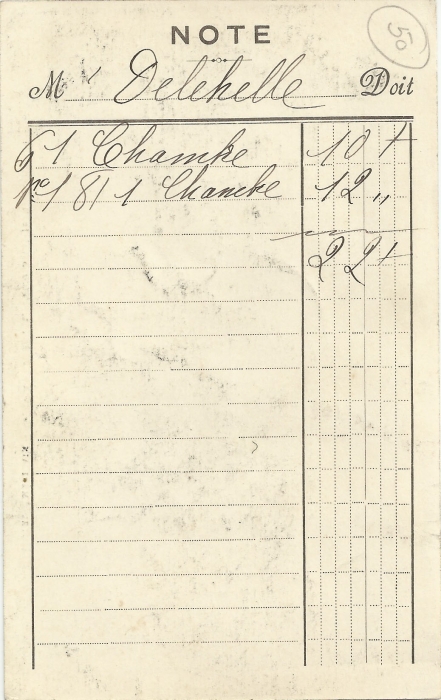 NOTE
50
M r Delehelle Doit
1 Chambre 10 +
no 181 1 Chambre 12 „
22 +